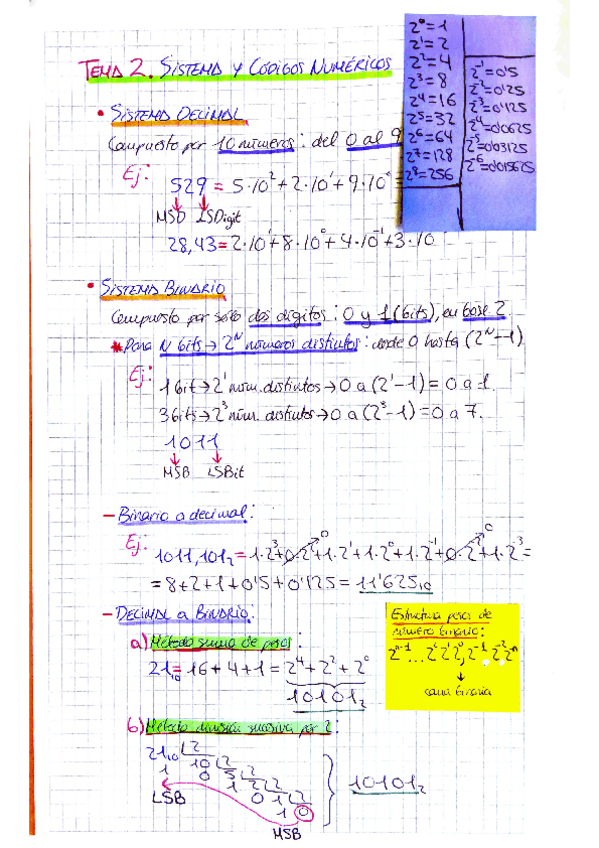 TEMA 2. SISTEMA Y CÓDIGOS NUMÉRICOS
2^0=1
2^1=2
2^2=4
2^3=8
2^4=16
2^5=32
2^6=64
2^7=128
2^8=256
2^-1=0'5
2^-2=0'25
2^-3=0'125
2^-4=0'0625
2^-5=0'03125
2^-6=0'015625
• SISTEMA DECIMAL
Compuesto por 10 números: del 0 al 9
Ej:
529 = 5·10^2+2·10^1+9·10^0 =
MSD LSDigit
28,43=2·10^1+8·10^0+4·10^-1+3·10
• SISTEMA BINARIO
Compuesto por solo dos dígitos: 0 y 1 (bits), en base 2
*Para N bits→2^N números distintos: desde 0 hasta (2^N-1)
Ej:
1 bit→2^1 núm. distintos→0 a (2^1-1)=0 a 1.
3 bits→2^3 núm. distintos→0 a (2^3-1)=0 a 7.
1011
MSB LSBit
- Binario a decimal:
Ej:
1011,101₂=1·2^3+0·2^2+1·2^1+1·2^0+1·2^-1+0·2^-2+1·2^-3=
=8+2+1+0'5+0'125=11'625₁₀
- DECIMAL A BINARIO:
a) Método suma de pesos:
21₁₀=16+4+1=2^4+2^2+2^0
10101₂
Estructura pesos de
número binario:
2^n-1...2^2 2^1 2^0, 2^-1 2^-2 2^-n
↓
coma binaria
b) Método división sucesiva por 2:
21₁₀ 2
1 10 2
0 5 2
1 2 2
0 1 2
1 0
10101₂
LSB
MSB